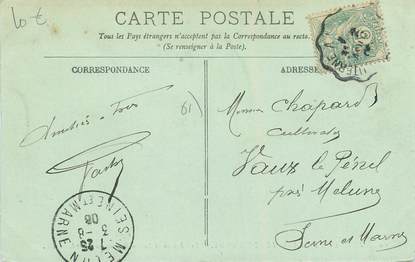 10 €
CARTE POSTALE
Tous les Pays étrangers n'acceptent pas la Correspondance au recto.
(Se renseigner à la Poste).
CORRESPONDANCE
ADRESSE
61)
Amitiés à Tous
Monsieur Chapard
Vaux le Pénil
près Melun
Seine et Marne
SEINE ET MARNE
1 25
3 -8
08